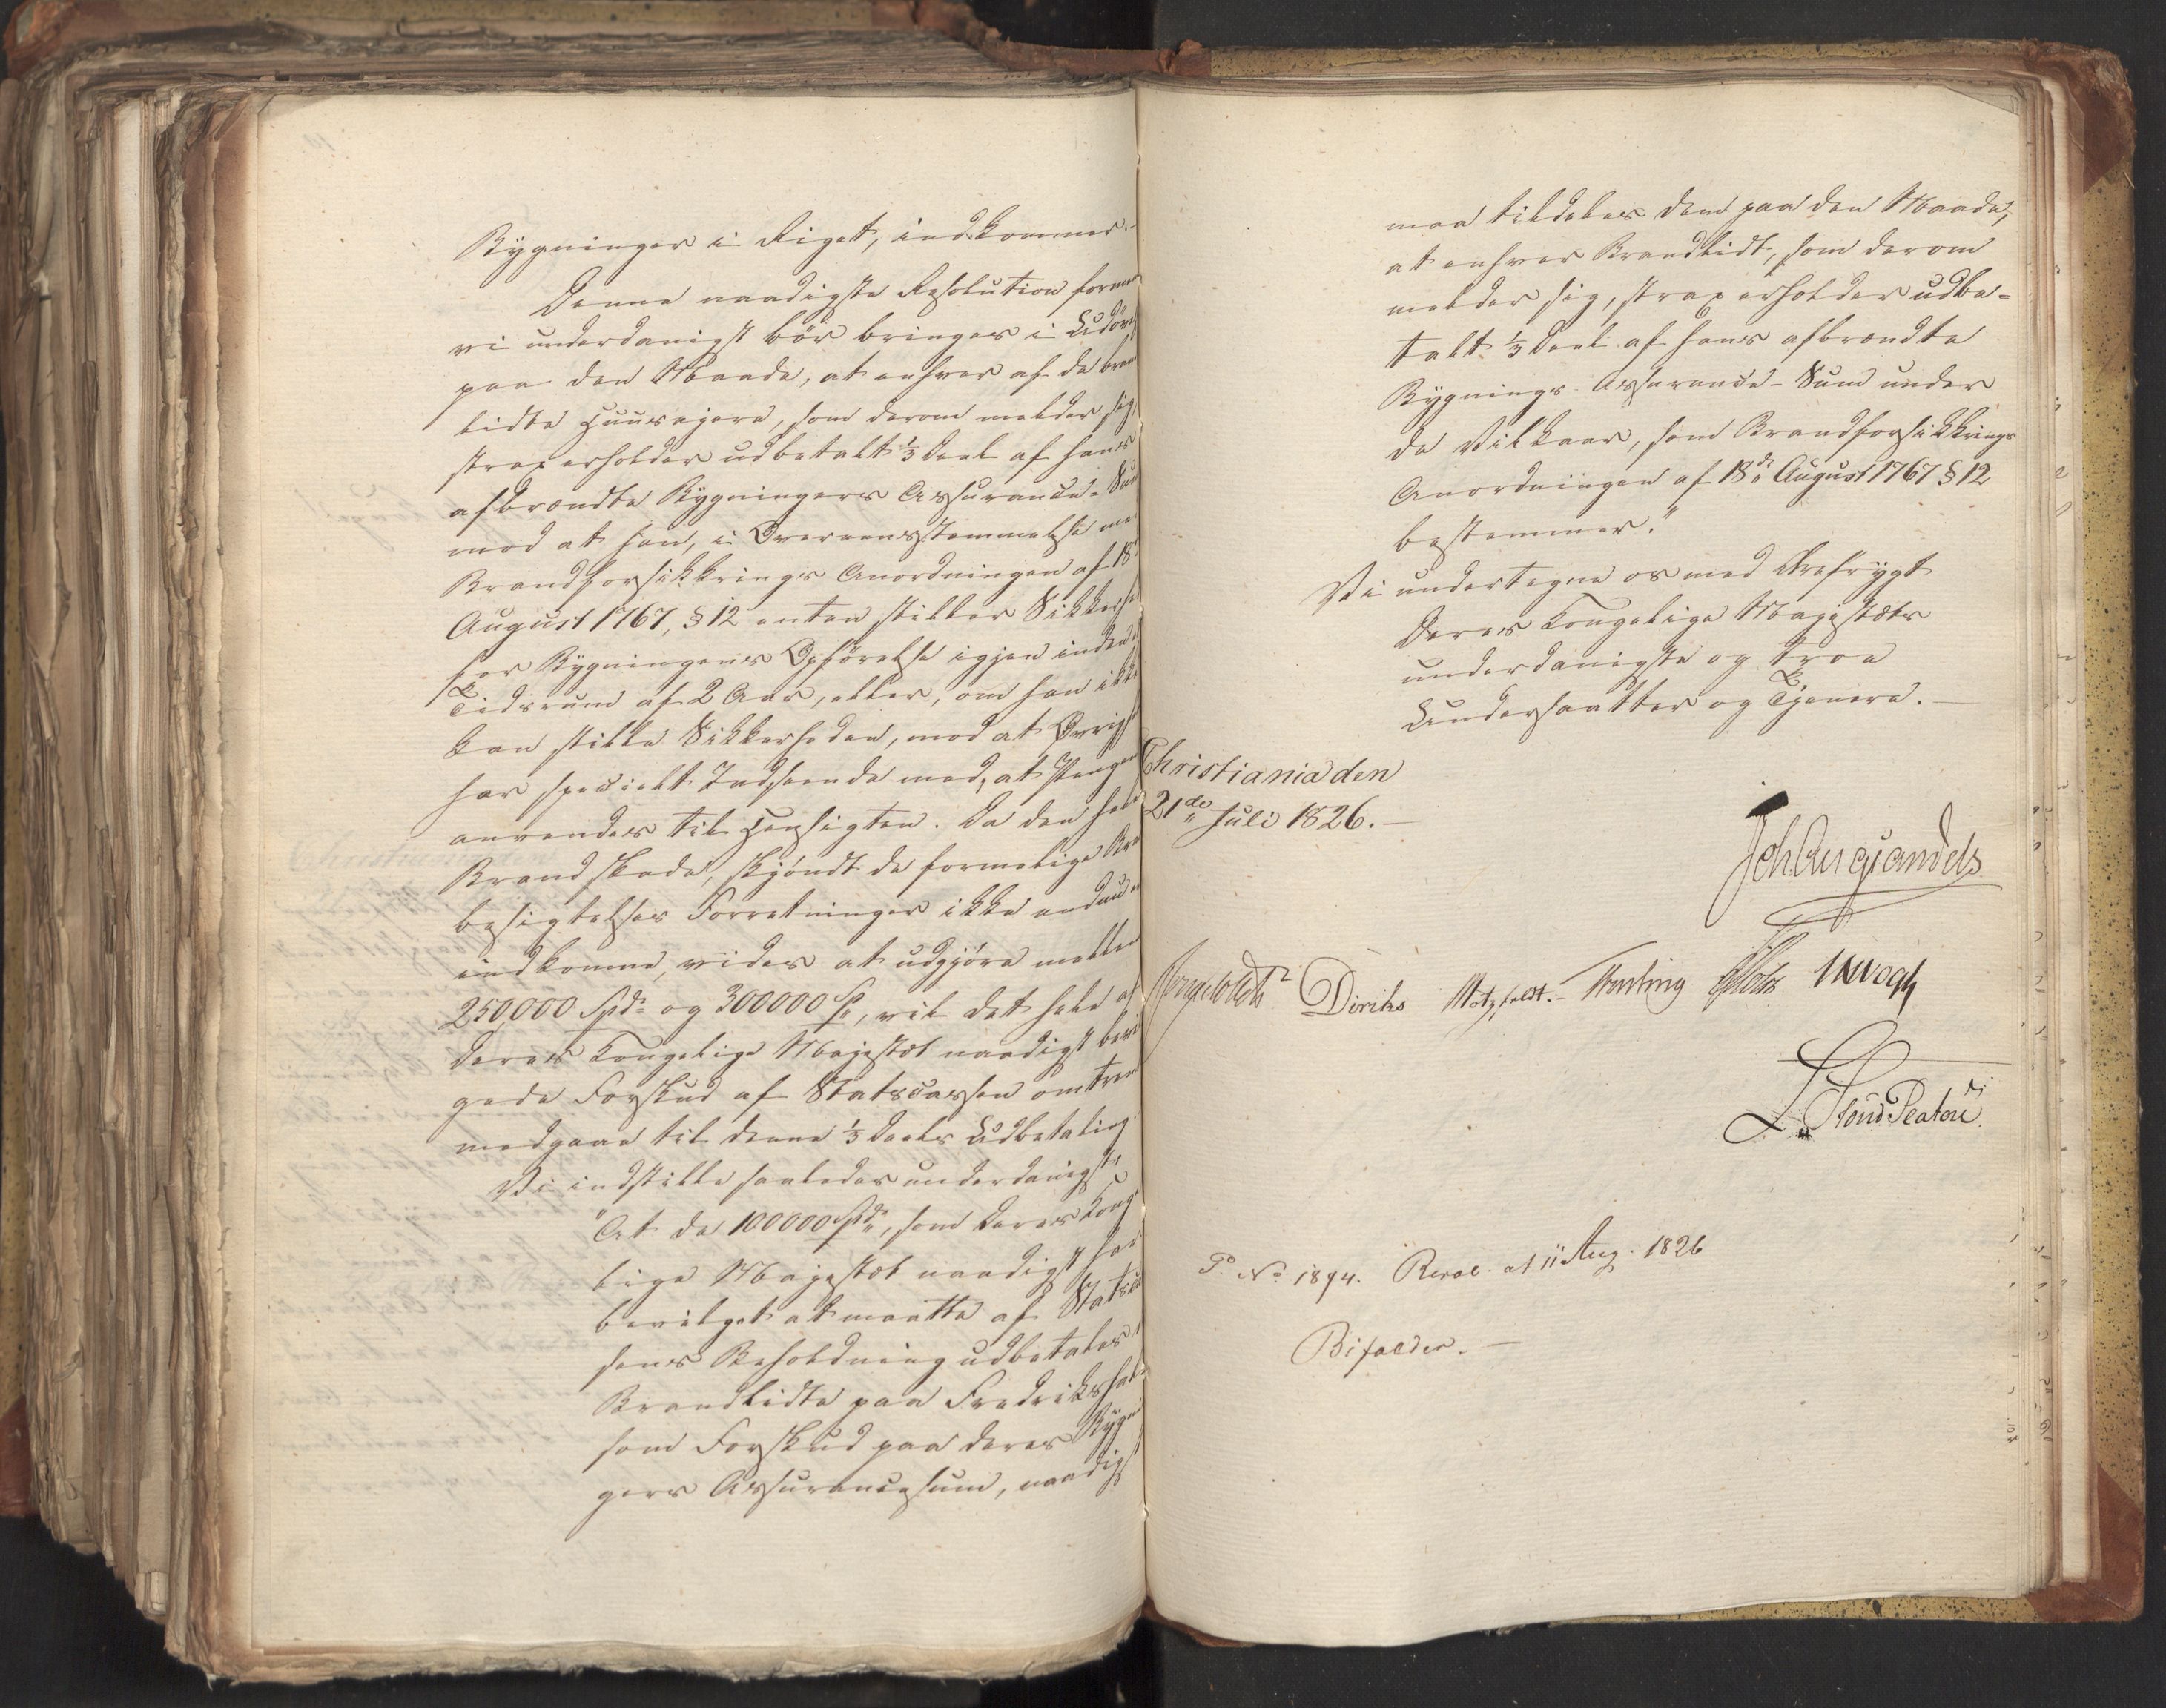 Bygninger i Riget, indkommer.
Denne naadigste Resolution forme
vi underdanigst bör bringes i Udövel
paa den Maade, at enhver af de bran
lidte Huuseiere, som derom melder sig
strax erholder udbetalt 1/3 Deel af hans
afbrændte Bygningers Assurance-Sum
mod at han, i Overeensstemmelse me
Brandforsikkrings Anordningen af 18
August 1767, § 12 enten stiller Sikkerhe
for Bygningens Opförelse igjen inden
Tidsrum af 2 Aar, eller, om han ikke
kan stille Sikkerheden, mod at Øvrigh
har specielt Indseende med, at Penge
anvendes til Hensigten. Da den hele
Brandskade, skjöndt de formelige Bra
besigtelses Forretninger ikke endnu
indkomne, vides at udgjöre mellem
250,000 Spd. og 300000 Sp, vil det hele af
Deres Kongelige Majestæt naadigst bevil
gede Forskud af Statscassen omtren
medgaae til denne 1/3 Deels Udbetaling.
Vi indstille saaledes underdanigst:
"At de 100000 Spdr, som Deres Konge
lige Majestæt naadigst har
bevilget at maatte af Statscas
sens Beholdning udbetales
Brandlidte paa Fredrikshal
som Forskud paa deres Bygni
gers Assurancesum, naadigst
maa tildeles dem paa den Maade,
at enhver Brandlidt, som derom
melder sig, strax erholder udbe-
talt 1/3 Deel af hans afbrændte
Bygnings-Assurance-Sum under
de Vilkaar, som Brandforsikkrings
Anordningen af 18de August 1767 § 12
bestemmer."
Vi undertegne os med Ærefrygt
Deres Kongelige Majestæts
underdanigste og troe
Undersaatter og Tjenere.
Christiania den
21de Juli 1826.
Joh Aug Sandels
Diriks Motzfeldt. Holst Vogh
P. No 1894. Resol. at 11 Aug. 1826
Bifaldes.